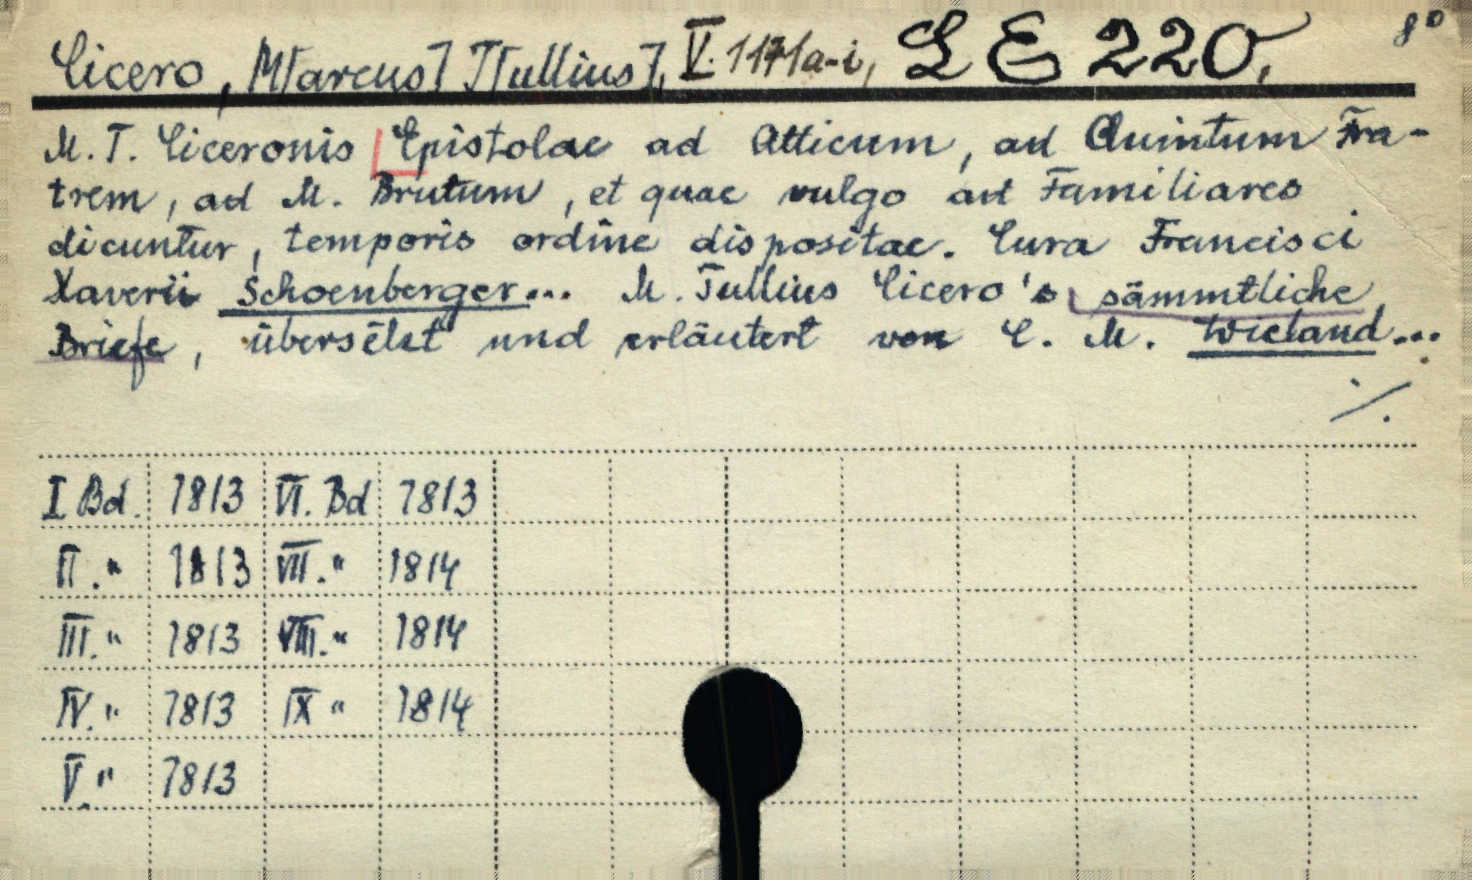 Cicero, M[arcus] T[ullius], V. 1171a-i, LE 220. 8°
M. T. Ciceronis Epistolae ad Atticum, ad Quintum Fra-
trem, ad M. Brutum, et quae vulgo ad Familiares
dicuntur, temporis ordine dispositae. Cura Francisci
Xaverii Schoenberger... M. Tullius Cicero's sämmtliche
Briefe, übersetzt und erläutert von C. M. Wieland...
./.
I Bd. 1813 VI. Bd 1813
II. " 1813 VII. " 1814
III. " 1813 VIII. " 1814
IV. " 1813 IX " 1814
V. " 1813